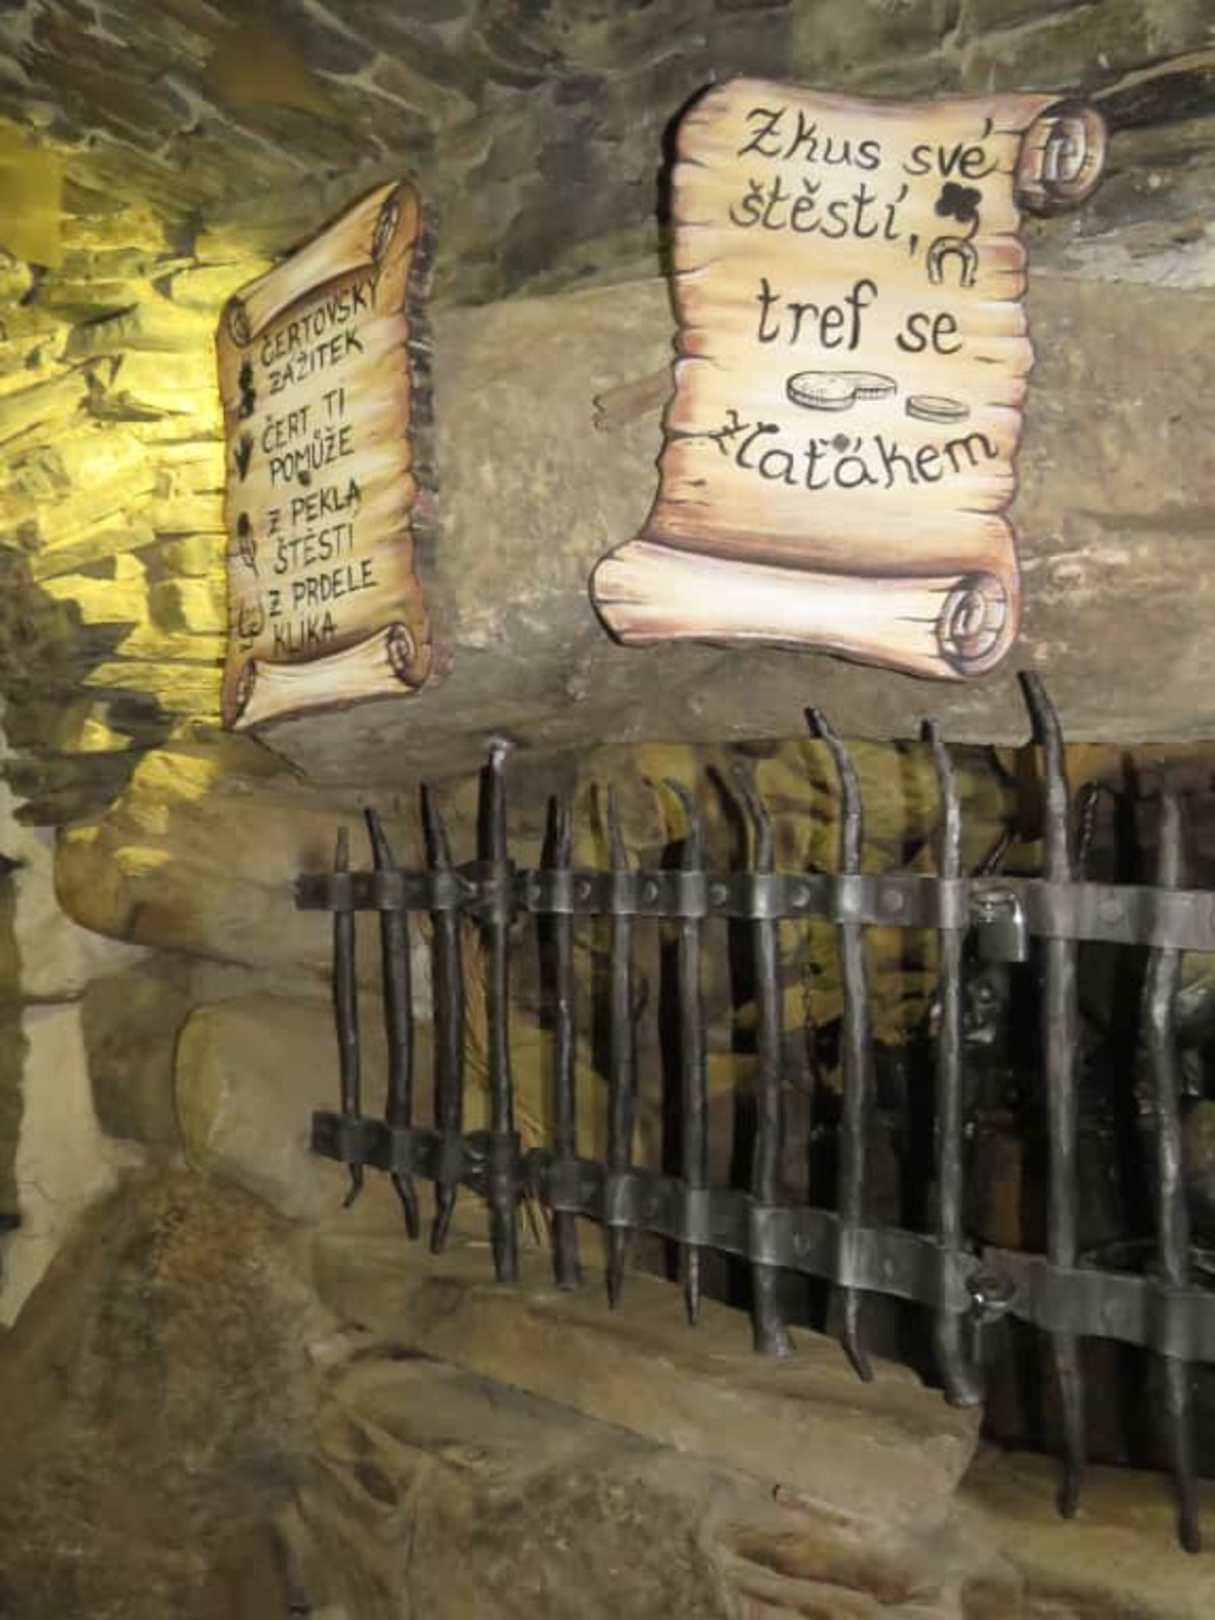 ČERTOVSKÝ
ZÁŽITEK
ČERT TI
POMŮŽE
Z PEKLA
ŠTĚSTÍ
Z PRDELE
KLIKA
Zkus své
štěstí,
tref se
zlaťákem